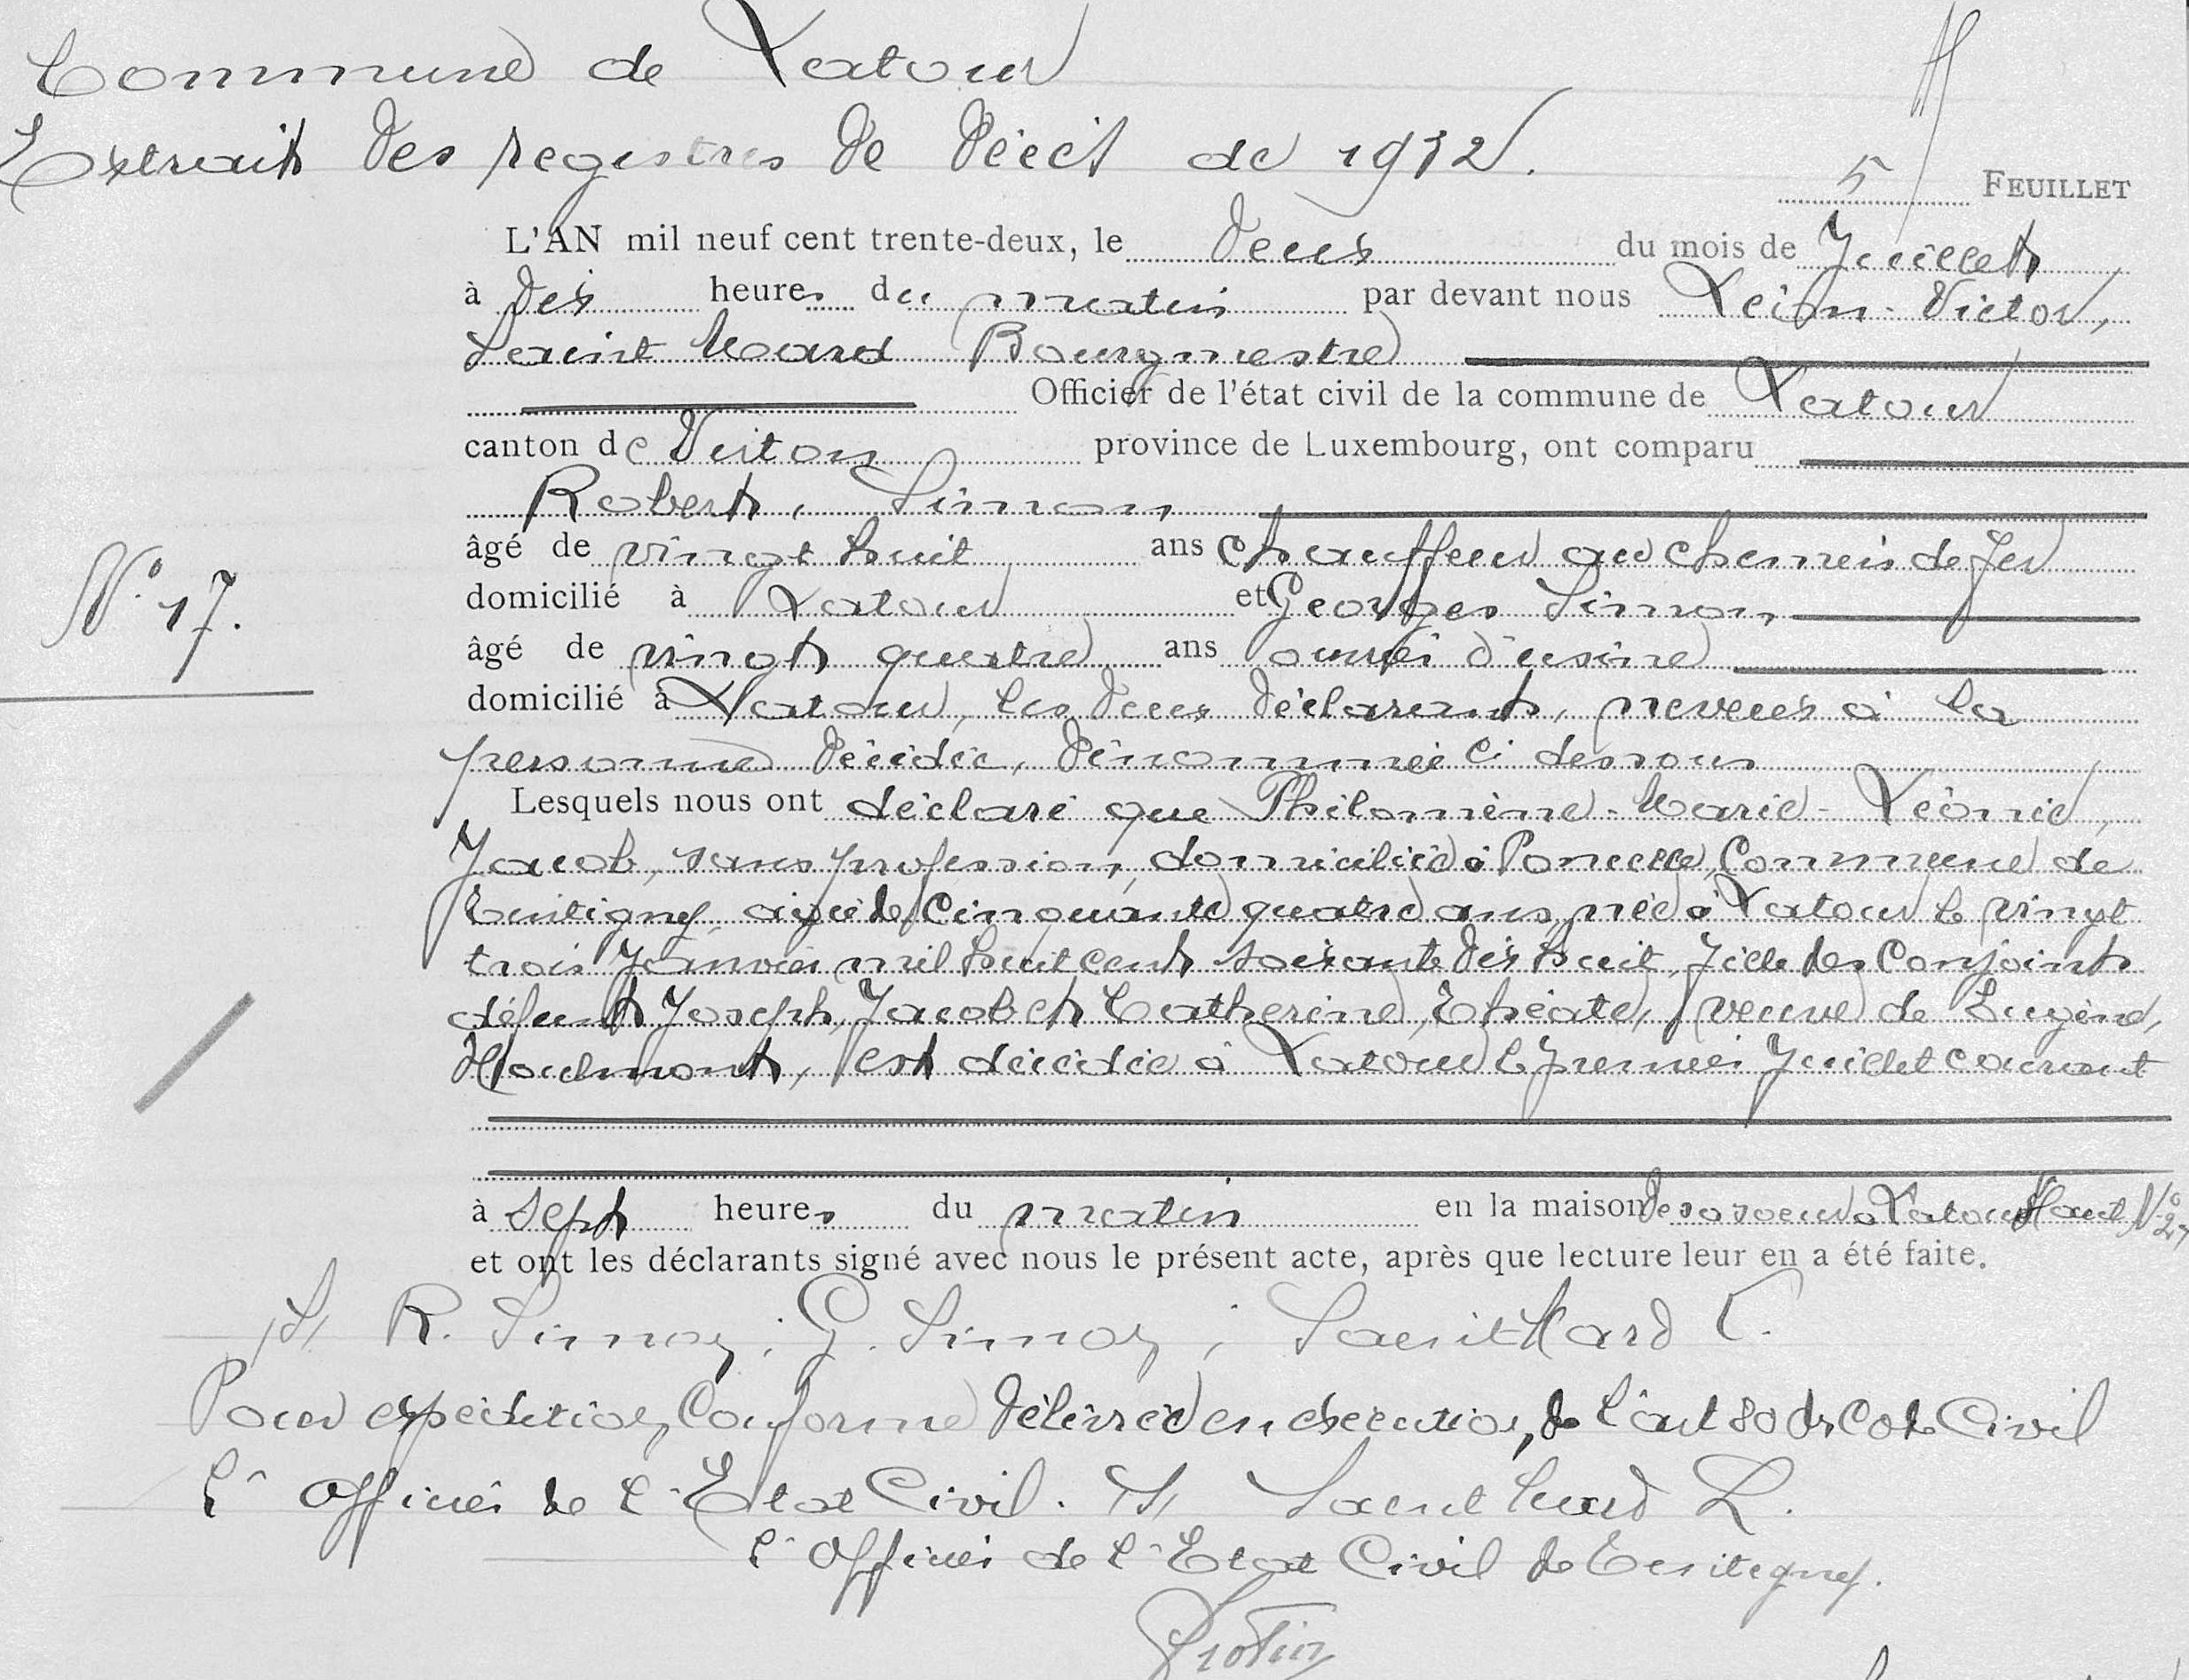 Commune de Latour
Extrait des registres de Décès de 1932.
5 FEUILLET
L'AN mil neuf cent trente-deux, le deux du mois de Juillet
à dix heures du matin par devant nous Léon-Victor,
Saint Mard Bourgmestre
Officier de l'état civil de la commune de Latour
canton de Virton province de Luxembourg, ont comparu
Robert, Simon,
âgé de vingt huit ans chauffeur au chemin de fer
N° 17.
domicilié à Latour et Georges Simon,
âgé de vingt quatre ans ouvrier d'usine
domicilié à Latour, les deux déclarants, neveux à la
personne décédée, dénommée ci dessous
Lesquels nous ont déclaré que Philomène-Marie-Léonie,
Jacob, sans profession, domiciliée à Poncelle, Commune de
Tintigny, âgée de cinquante quatre ans, née à Latour le vingt
trois Janvier mil huit cent soixante dix huit, fille des Conjoints
défunts Joseph, Jacob et Catherine, Théate, veuve de Eugène,
Houdmont, est décédée à Latour le premier Juillet courant
à sept heures du matin en la maison de sa soeur à Latour Haut N° 27
et ont les déclarants signé avec nous le présent acte, après que lecture leur en a été faite.
/s/ R. Simon; G. Simon; Saint Mard L.
Pour expédition conforme délivrée en exécution, de l'art 80 du Code Civil
L'officier de l'Etat Civil. /s/ Saint Mard L.
L'officier de l'Etat Civil de Tintigny.
Protin